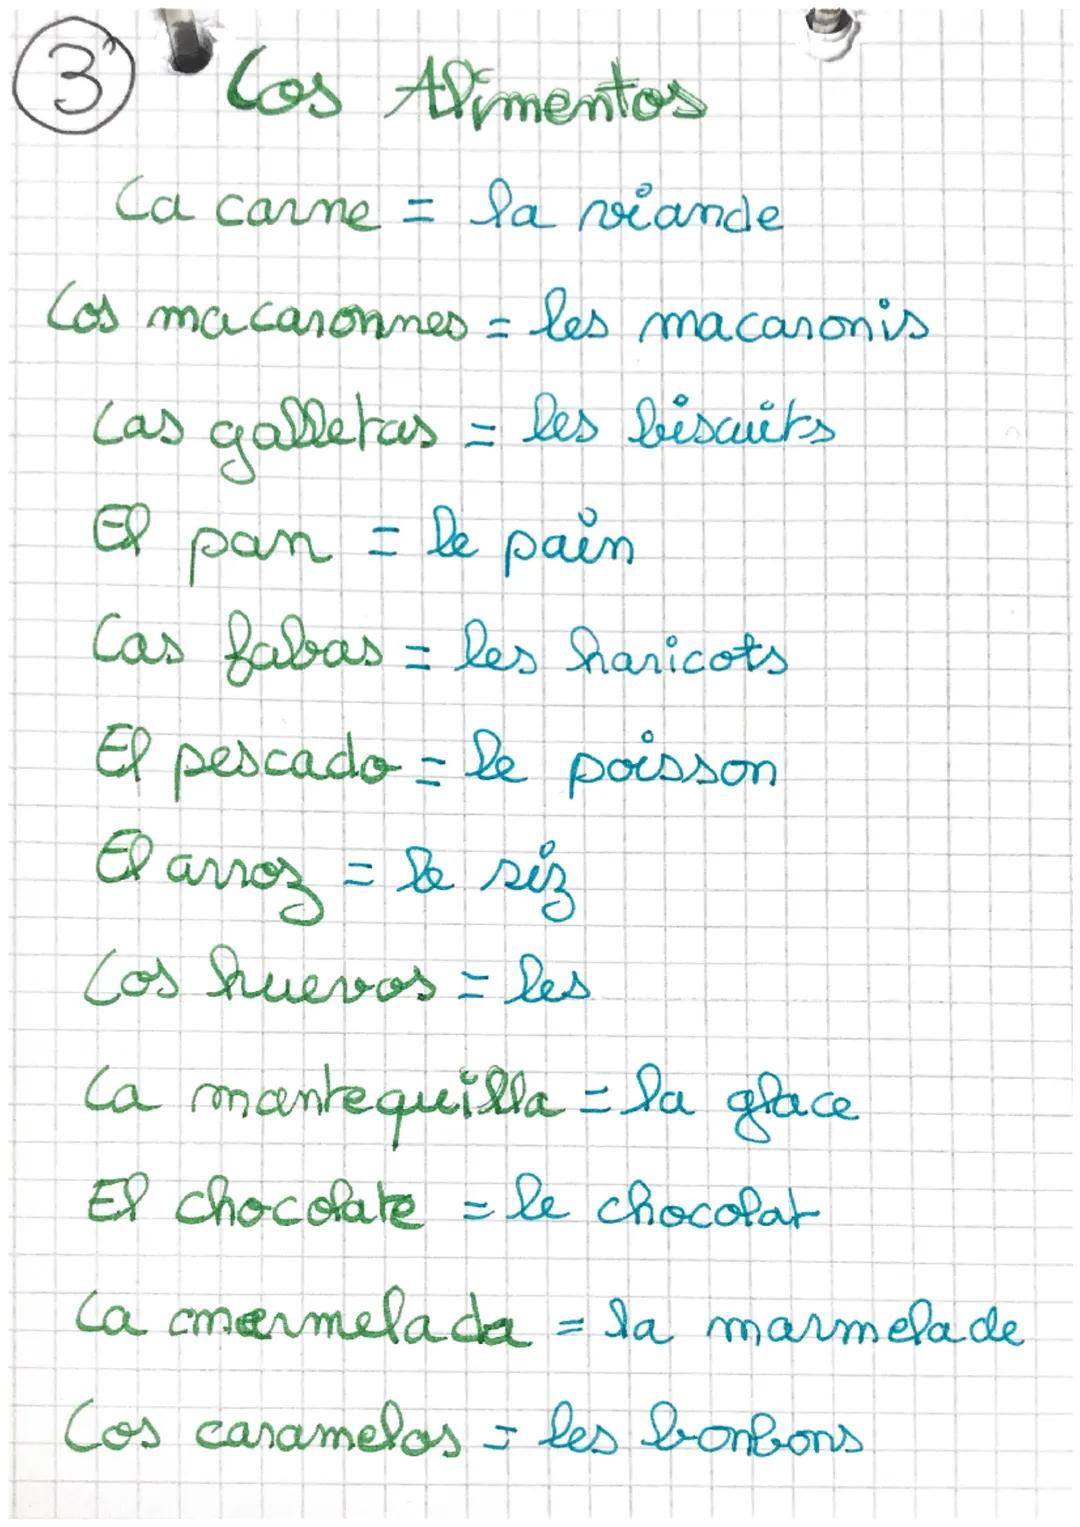 3
Los Alimentos
La carne = la viande
Los macaronnes = les macaronis
Las galletas = les biscuits
El pan = le pain
Las fabas = les haricots
El pescado = le poisson
El arroz = le riz
Los huevos = les
La mantequilla = la glace
El chocolate = le chocolat
La mermelada = la marmelade
Los caramelos = les bonbons